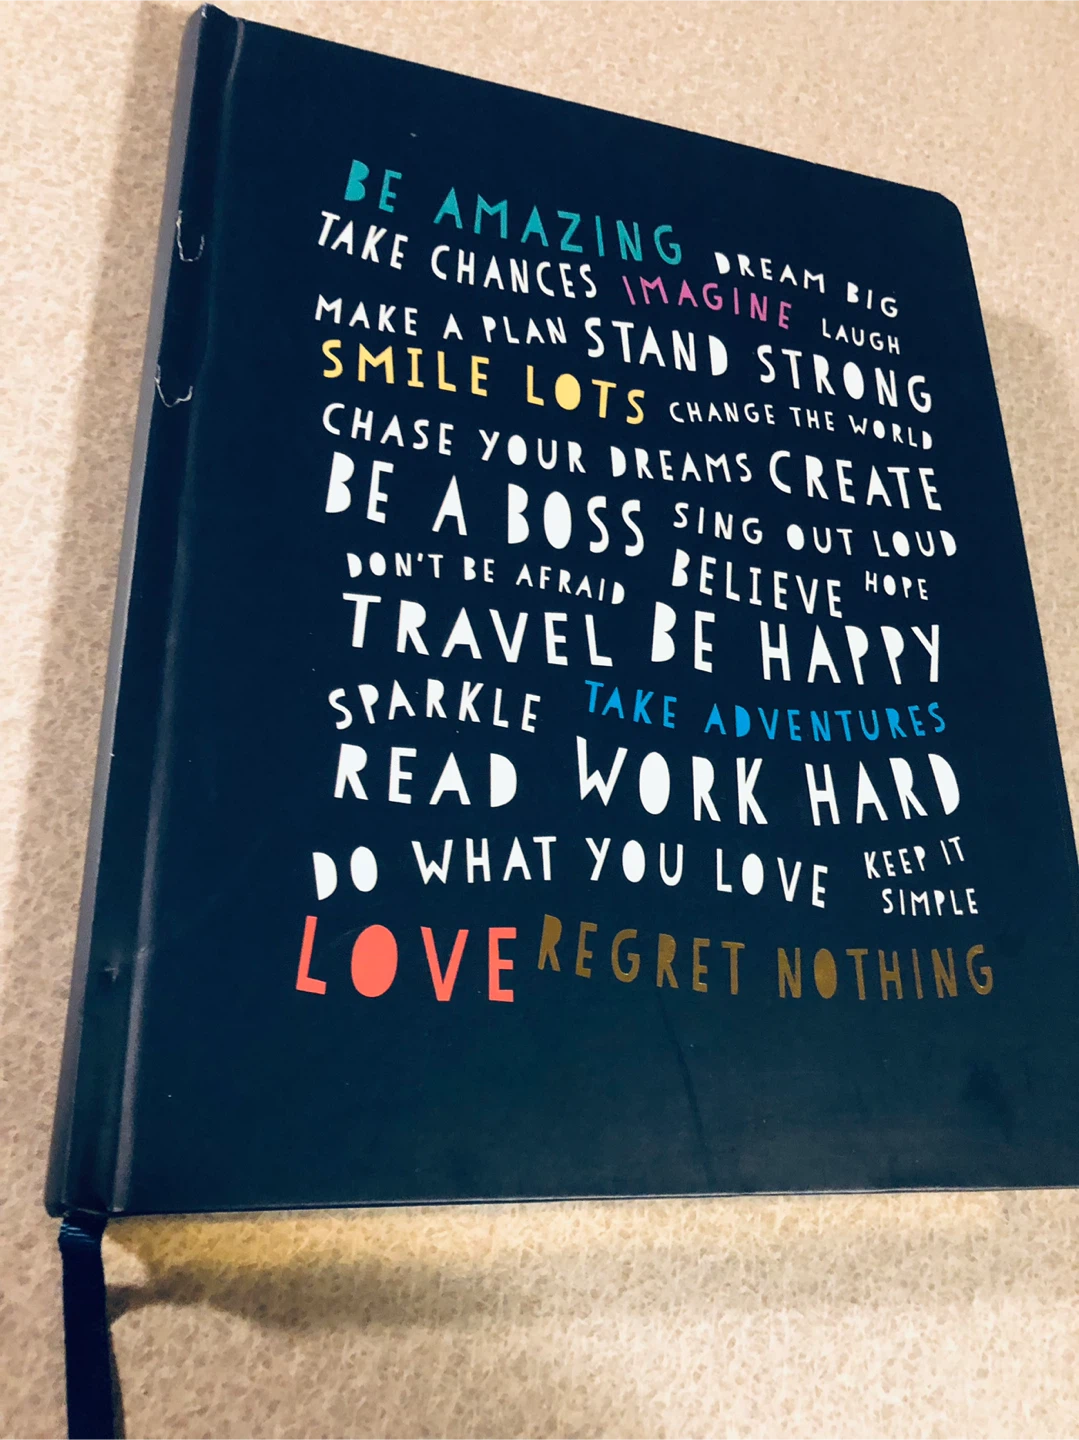 BE AMAZING DREAM BIG
TAKE CHANCES IMAGINE LAUGH
MAKE A PLAN STAND STRONG
SMILE LOTS CHANGE THE WORLD
CHASE YOUR DREAMS CREATE
BE A BOSS SING OUT LOUD
DON'T BE AFRAID BELIEVE HOPE
TRAVEL BE HAPPY
SPARKLE TAKE ADVENTURES
READ WORK HARD
DO WHAT YOU LOVE KEEP IT
SIMPLE
LOVE REGRET NOTHING